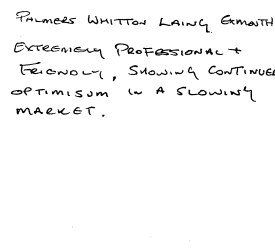 PALMERS WHITTON LAING EXMOUTH
EXTREMELY PROFESSIONAL +
FRIENDLY, SHOWING CONTINUED
OPTIMISUM IN A SLOWING
MARKET.